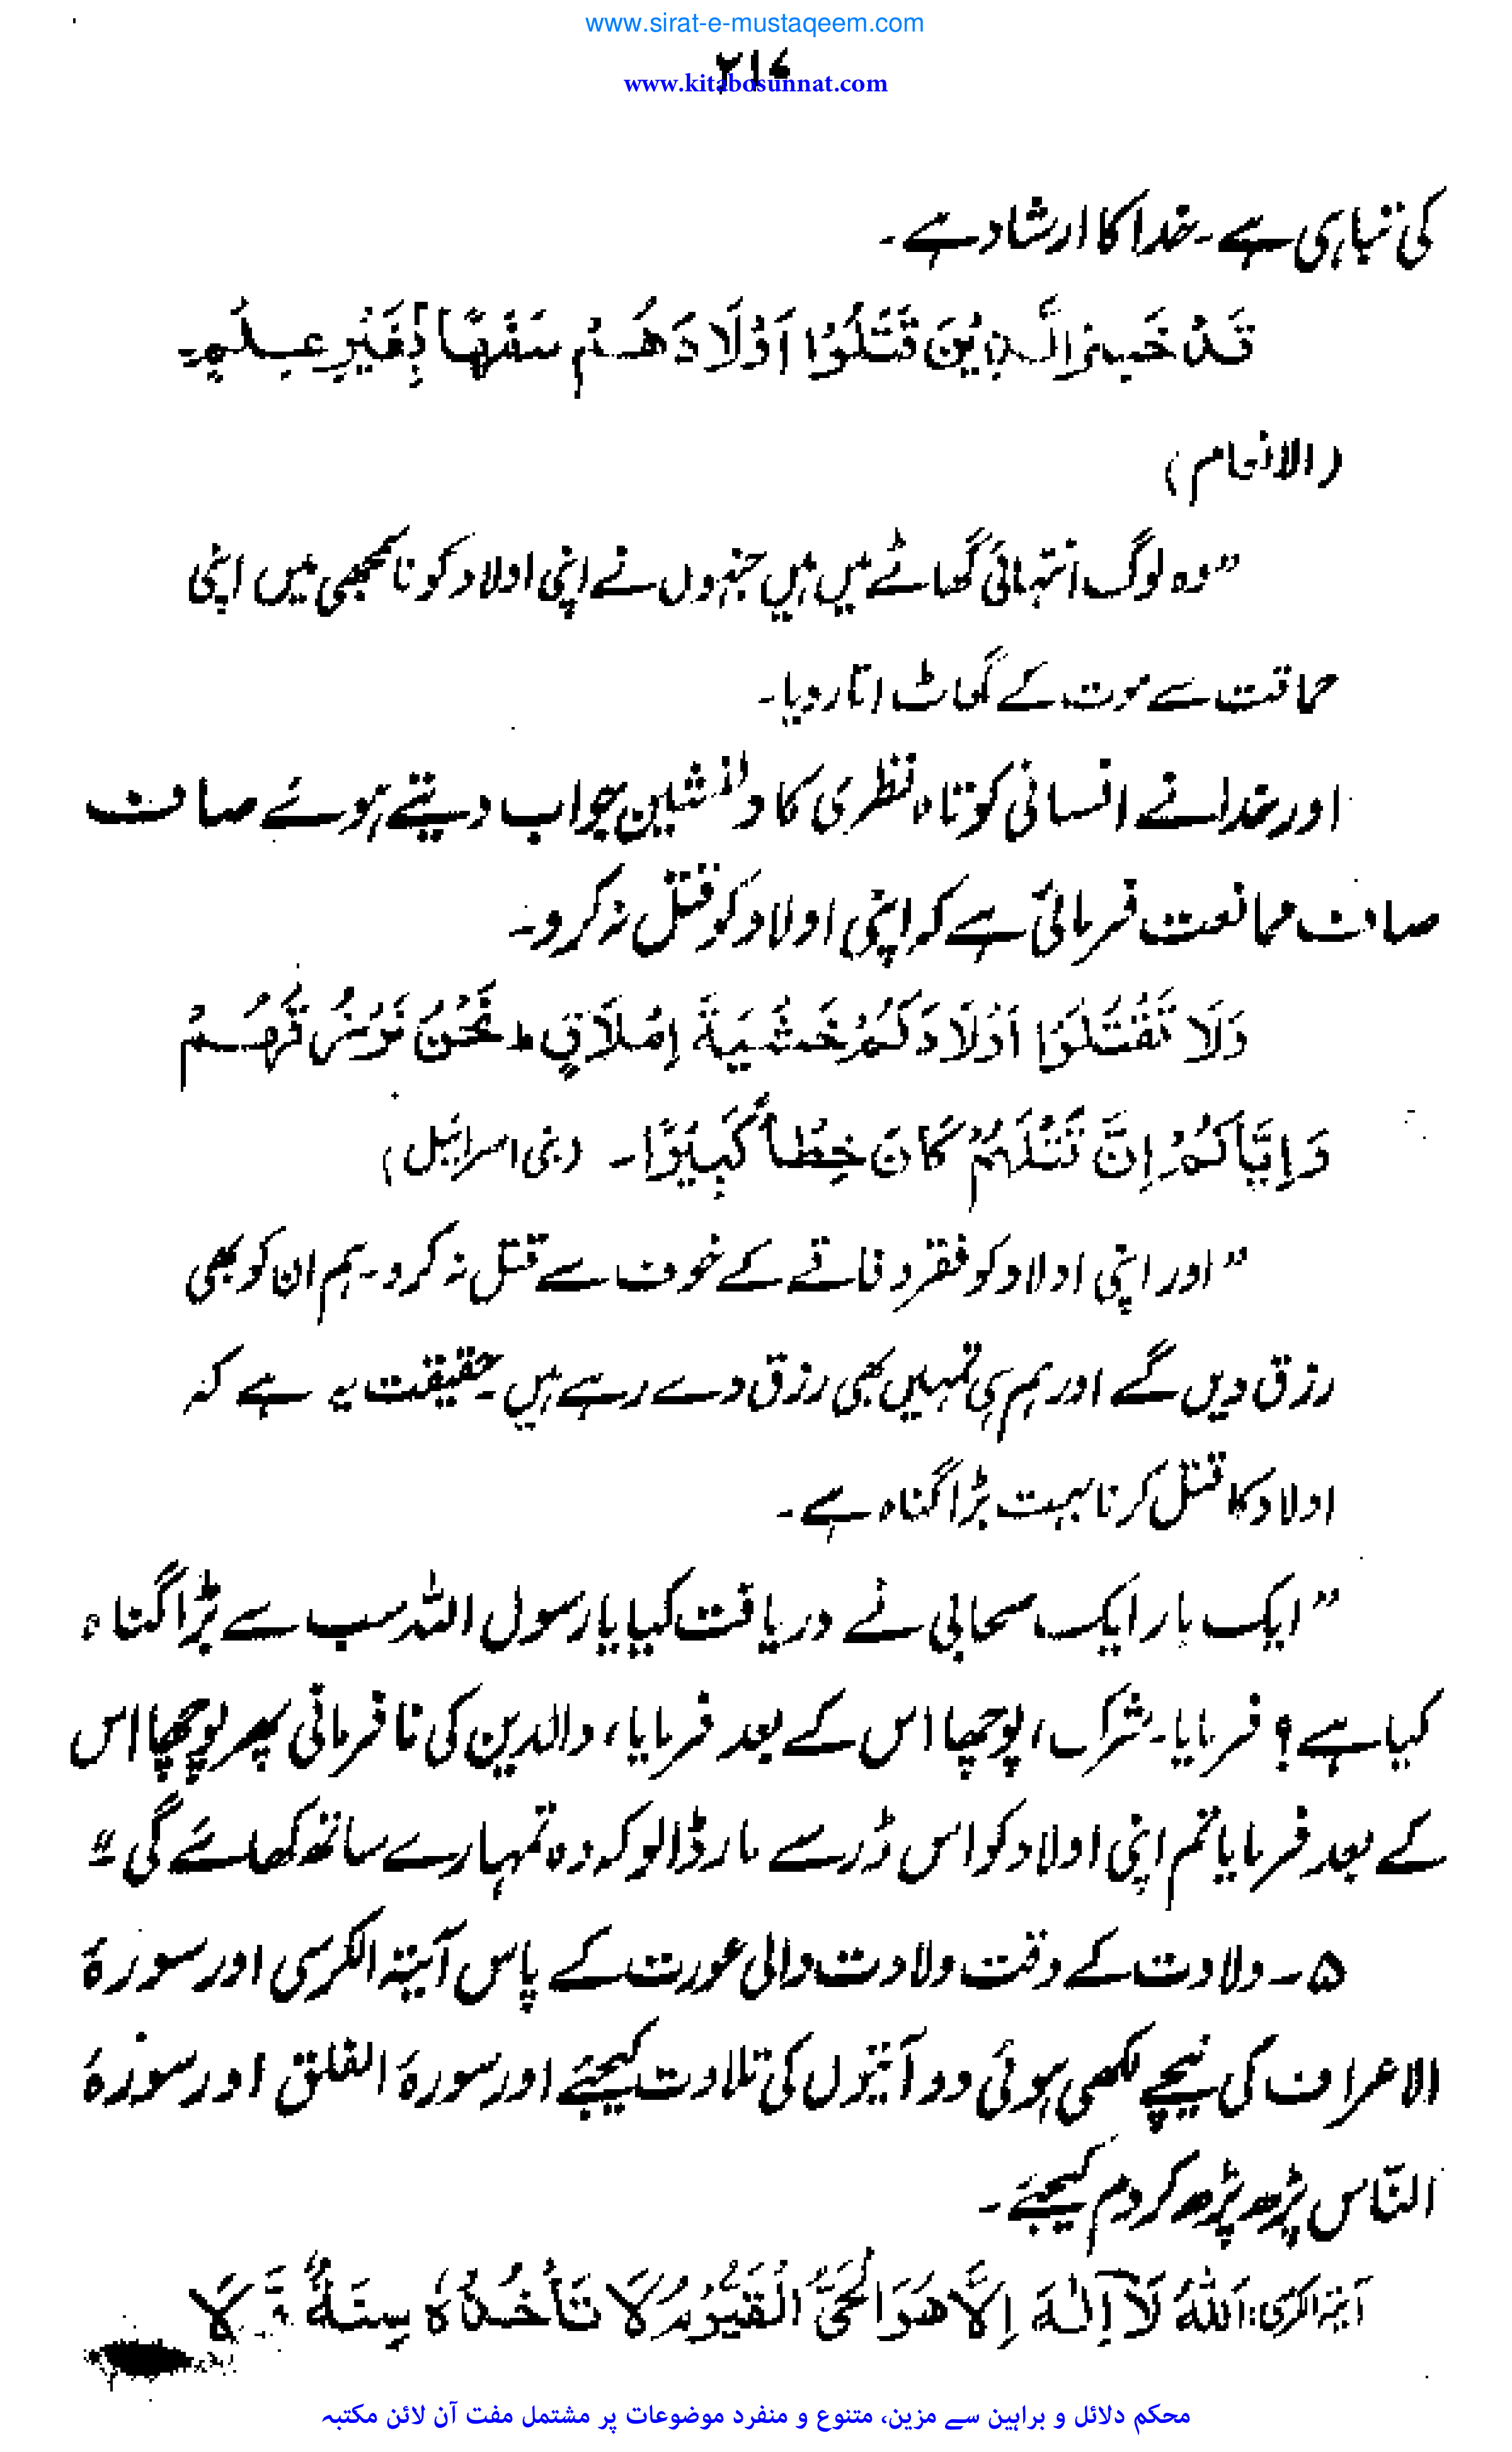 www.sirat-e-mustaqeem.com
۲۱۷
www.kitabosunnat.com
کی تباہی ہے۔ خدا کا ارشاد ہے۔
قَدْ خَسِرَ الَّذِيْنَ قَتَلُوْا اَوْلَادَهُمْ سَفَهًا بِغَيْرِ عِلْمٍ۔
(الانعام)
”وہ لوگ انتہائی گھاٹے میں ہیں جنہوں نے اپنی اولاد کو ناسمجھی میں اپنی
حماقت سے موت کے گھاٹ اتار دیا۔
اور خدا نے انسانی کوتاہ نظری کا دلنشین جواب دیتے ہوئے صاف
صاف ممانعت فرمائی ہے کہ اپنی اولاد کو قتل نہ کرو۔
وَلَا تَقْتُلُوْا اَوْلَادَكُمْ خَشْيَةَ اِمْلَاقٍ ط نَحْنُ نَرْزُقُهُمْ
وَاِيَّاكُمْ اِنَّ قَتْلَهُمْ كَانَ خِطْأً كَبِيْرًا۔ (بنی اسرائیل)
”اور اپنی اولاد کو فقر و فاقے کے خوف سے قتل نہ کرو۔ ہم ان کو بھی
رزق دیں گے اور ہم ہی تمہیں بھی رزق دے رہے ہیں۔ حقیقت یہ ہے کہ
اولاد کا قتل کرنا بہت بڑا گناہ ہے۔
”ایک بار ایک صحابی نے دریافت کیا یا رسول اللہ سب سے بڑا گناہ
کیا ہے؟ فرمایا۔ شرک، پوچھا اس کے بعد فرمایا، والدین کی نافرمانی پھر پوچھا اس
کے بعد فرمایا تم اپنی اولاد کو اس ڈر سے مار ڈالو کہ وہ تمہارے ساتھ کھائے گی۔“
۵۔ ولادت کے وقت ولادت والی عورت کے پاس آیۃ الکرسی اور سورۂ
الاعراف کی نیچے لکھی ہوئی دو آیتوں کی تلاوت کیجئے اور سورۂ الفلق اور سورۂ
النّاس پڑھ پڑھ کر دم کیجئے۔
آیۃ الکرسی: اَللّٰهُ لَآ اِلٰهَ اِلَّا هُوَ الْحَىُّ الْقَيُّوْمُ لَا تَاْخُذُهٗ سِنَةٌ وَّ لَا
محکم دلائل و براہین سے مزین، متنوع و منفرد موضوعات پر مشتمل مفت آن لائن مکتبہ